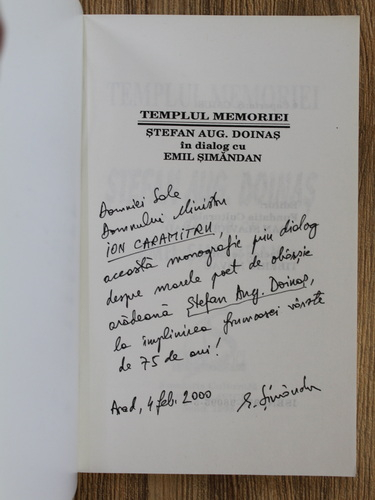 TEMPLUL MEMORIEI
ȘTEFAN AUG. DOINAȘ
în dialog cu
EMIL ȘIMĂNDAN
Domniei Sale
Domnului Ministru
ION CARAMITRU,
această monografie prin dialog
despre marele poet de obârșie
arădeană Ștefan Aug. Doinaș,
la împlinirea frumoasei vârste
de 75 de ani!
Arad, 4 feb. 2000
E. Șimăndan